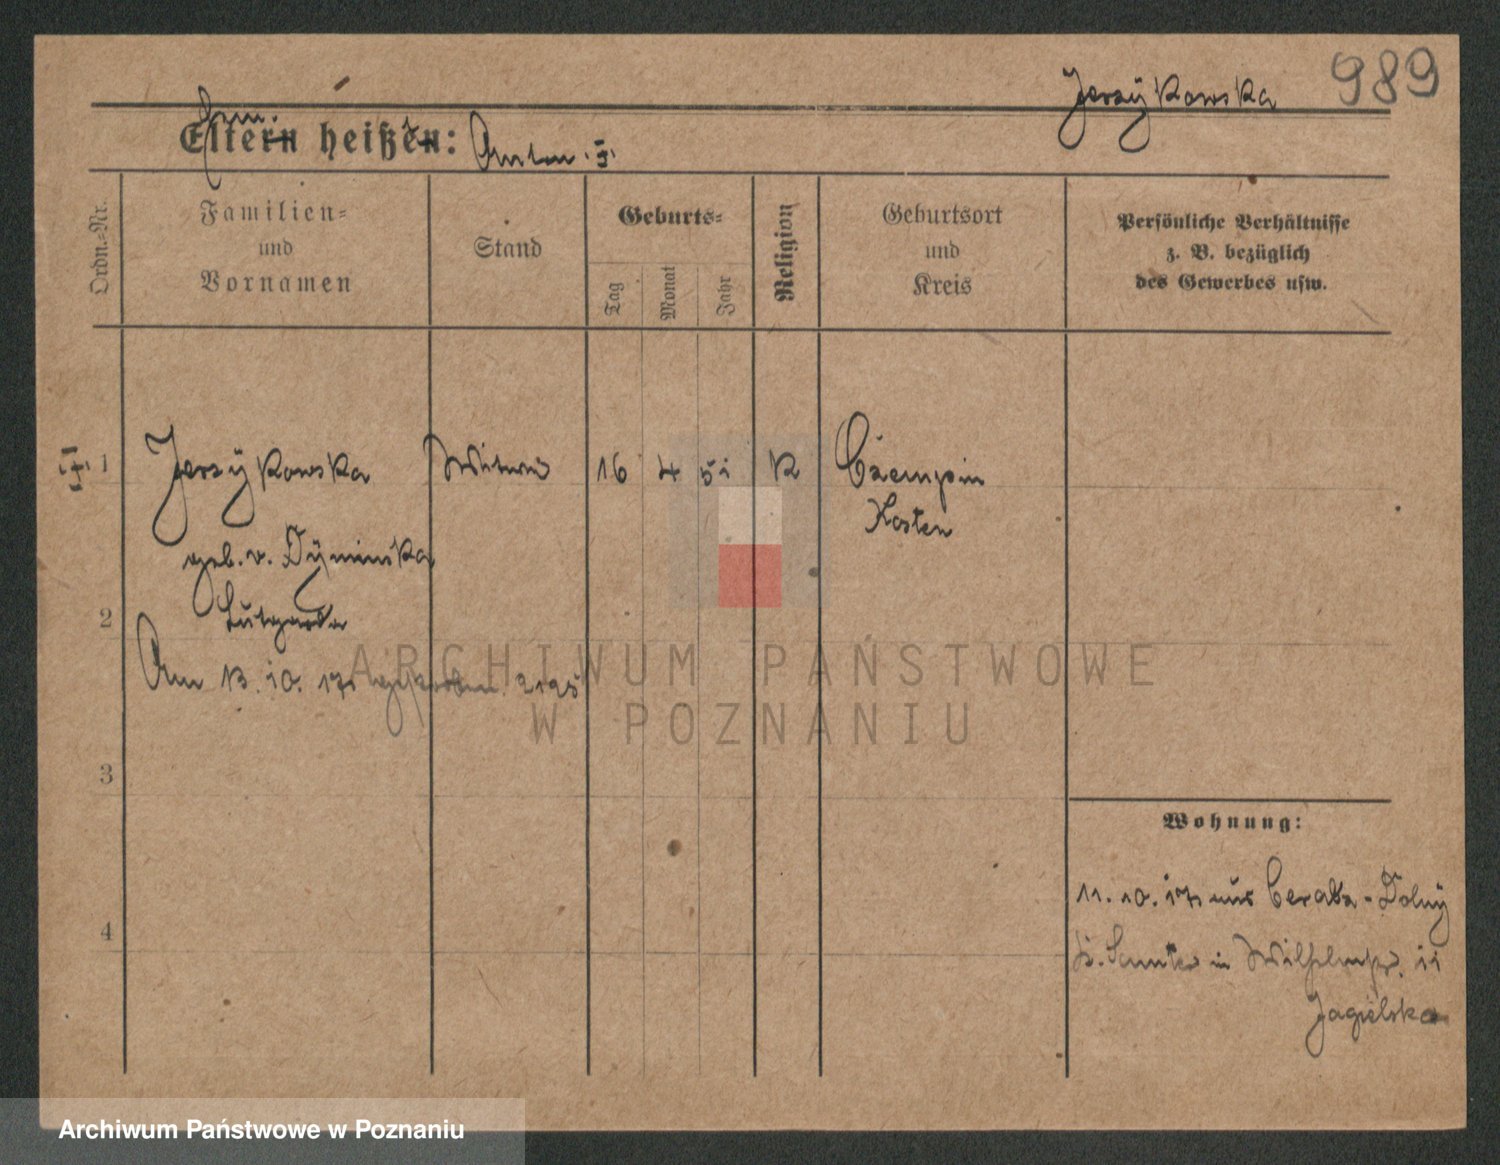 Jerzÿkowska 989
Eltern heißen: Anton
Ordn.=Nr.
Familien=
und
Vornamen
Stand
Geburts=
Tag
Monat
Jahr
Religion
Geburtsort
und
Kreis
Persönliche Verhältnisse
z. B. bezüglich
des Gewerbes usw.
1 Jerzÿkowska Witwe 16 4 51 K Czempin
Kosten
geb. v. Dÿminska
Lutgarda
2
Am 13. 10. 17 2195
3
4
Wohnung:
11. 10. 17 aus Ceradz-Dolnÿ
K. Samter in Wilhelmstr. 11
Jagielska
ARCHIWUM PAŃSTWOWE
W POZNANIU
Archiwum Państwowe w Poznaniu